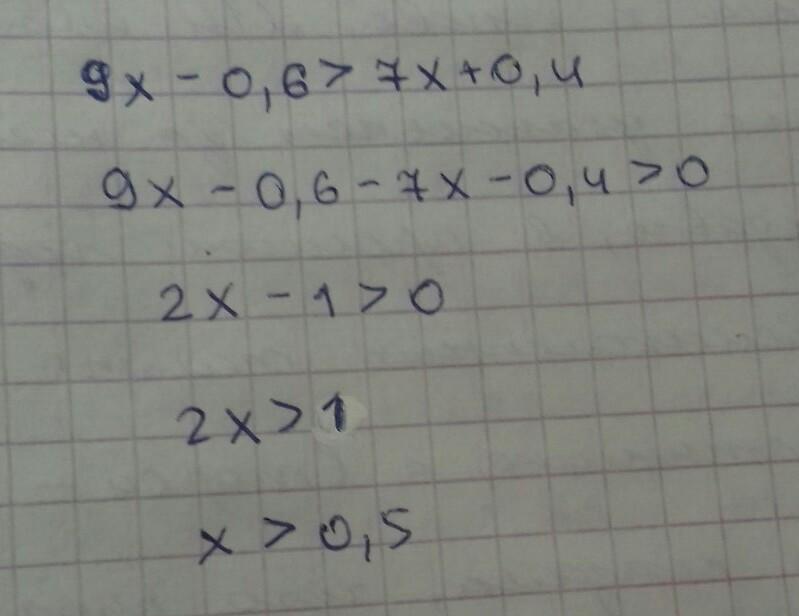 9x - 0,6 > 7x + 0,4
9x - 0,6 - 7x - 0,4 > 0
2x - 1 > 0
2x > 1
x > 0,5